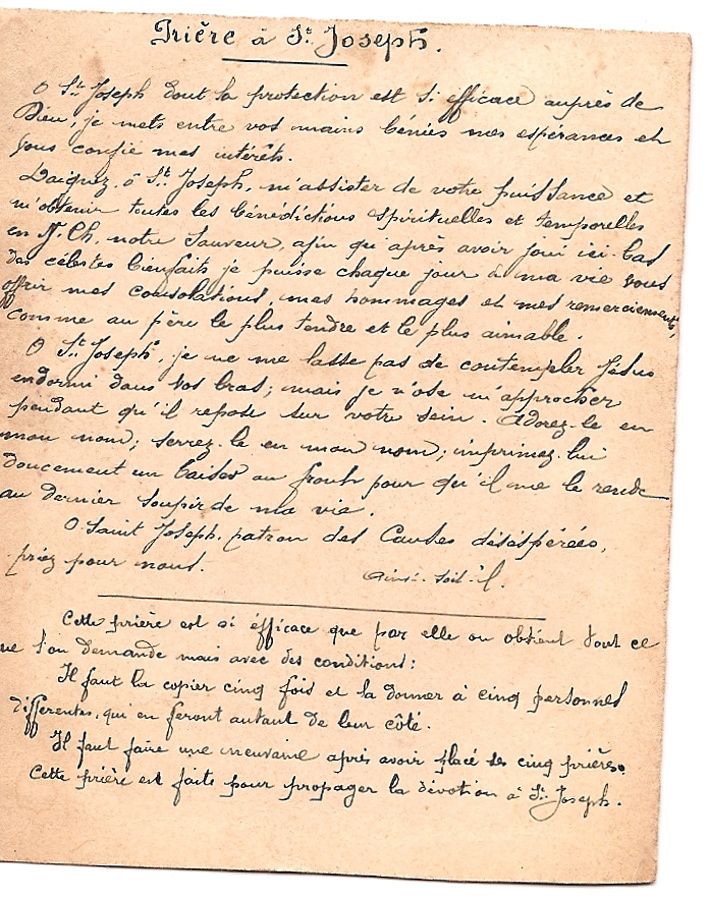 Prière à St Joseph.
O St Joseph dont la protection est si efficace auprès de
Dieu, je mets entre vos mains bénies mes espérances et
vous confie mes intérêts.
Daignez, ô St Joseph, m'assister de votre puissance et
m'obtenir toutes les bénédictions spirituelles et temporelles
en J. Ch. notre Sauveur, afin qu'après avoir joui ici-bas
des célestes bienfaits je puisse chaque jour de ma vie vous
offrir mes consolations, mes hommages et mes remerciements,
comme au père le plus tendre et le plus aimable.
O St Joseph, je ne me lasse pas de contempler Jésus
endormi dans vos bras; mais je n'ose m'approcher
pendant qu'il repose sur votre sein. Adorez-le en
mon nom; serrez-le en mon nom; imprimez-lui
doucement un baiser au front pour qu'il me le rende
au dernier soupir de ma vie.
O Saint Joseph, patron des Causes désespérées,
priez pour nous. Ainsi-soit-il.
Cette prière est si efficace que par elle on obtient tout ce
ue l'on demande mais avec des conditions:
Il faut la copier cinq fois et la donner à cinq personnes
différentes, qui en feront autant de leur côté.
Il faut faire une neuvaine après avoir placé ses cinq prières.
Cette prière est faite pour propager la dévotion à St Joseph.